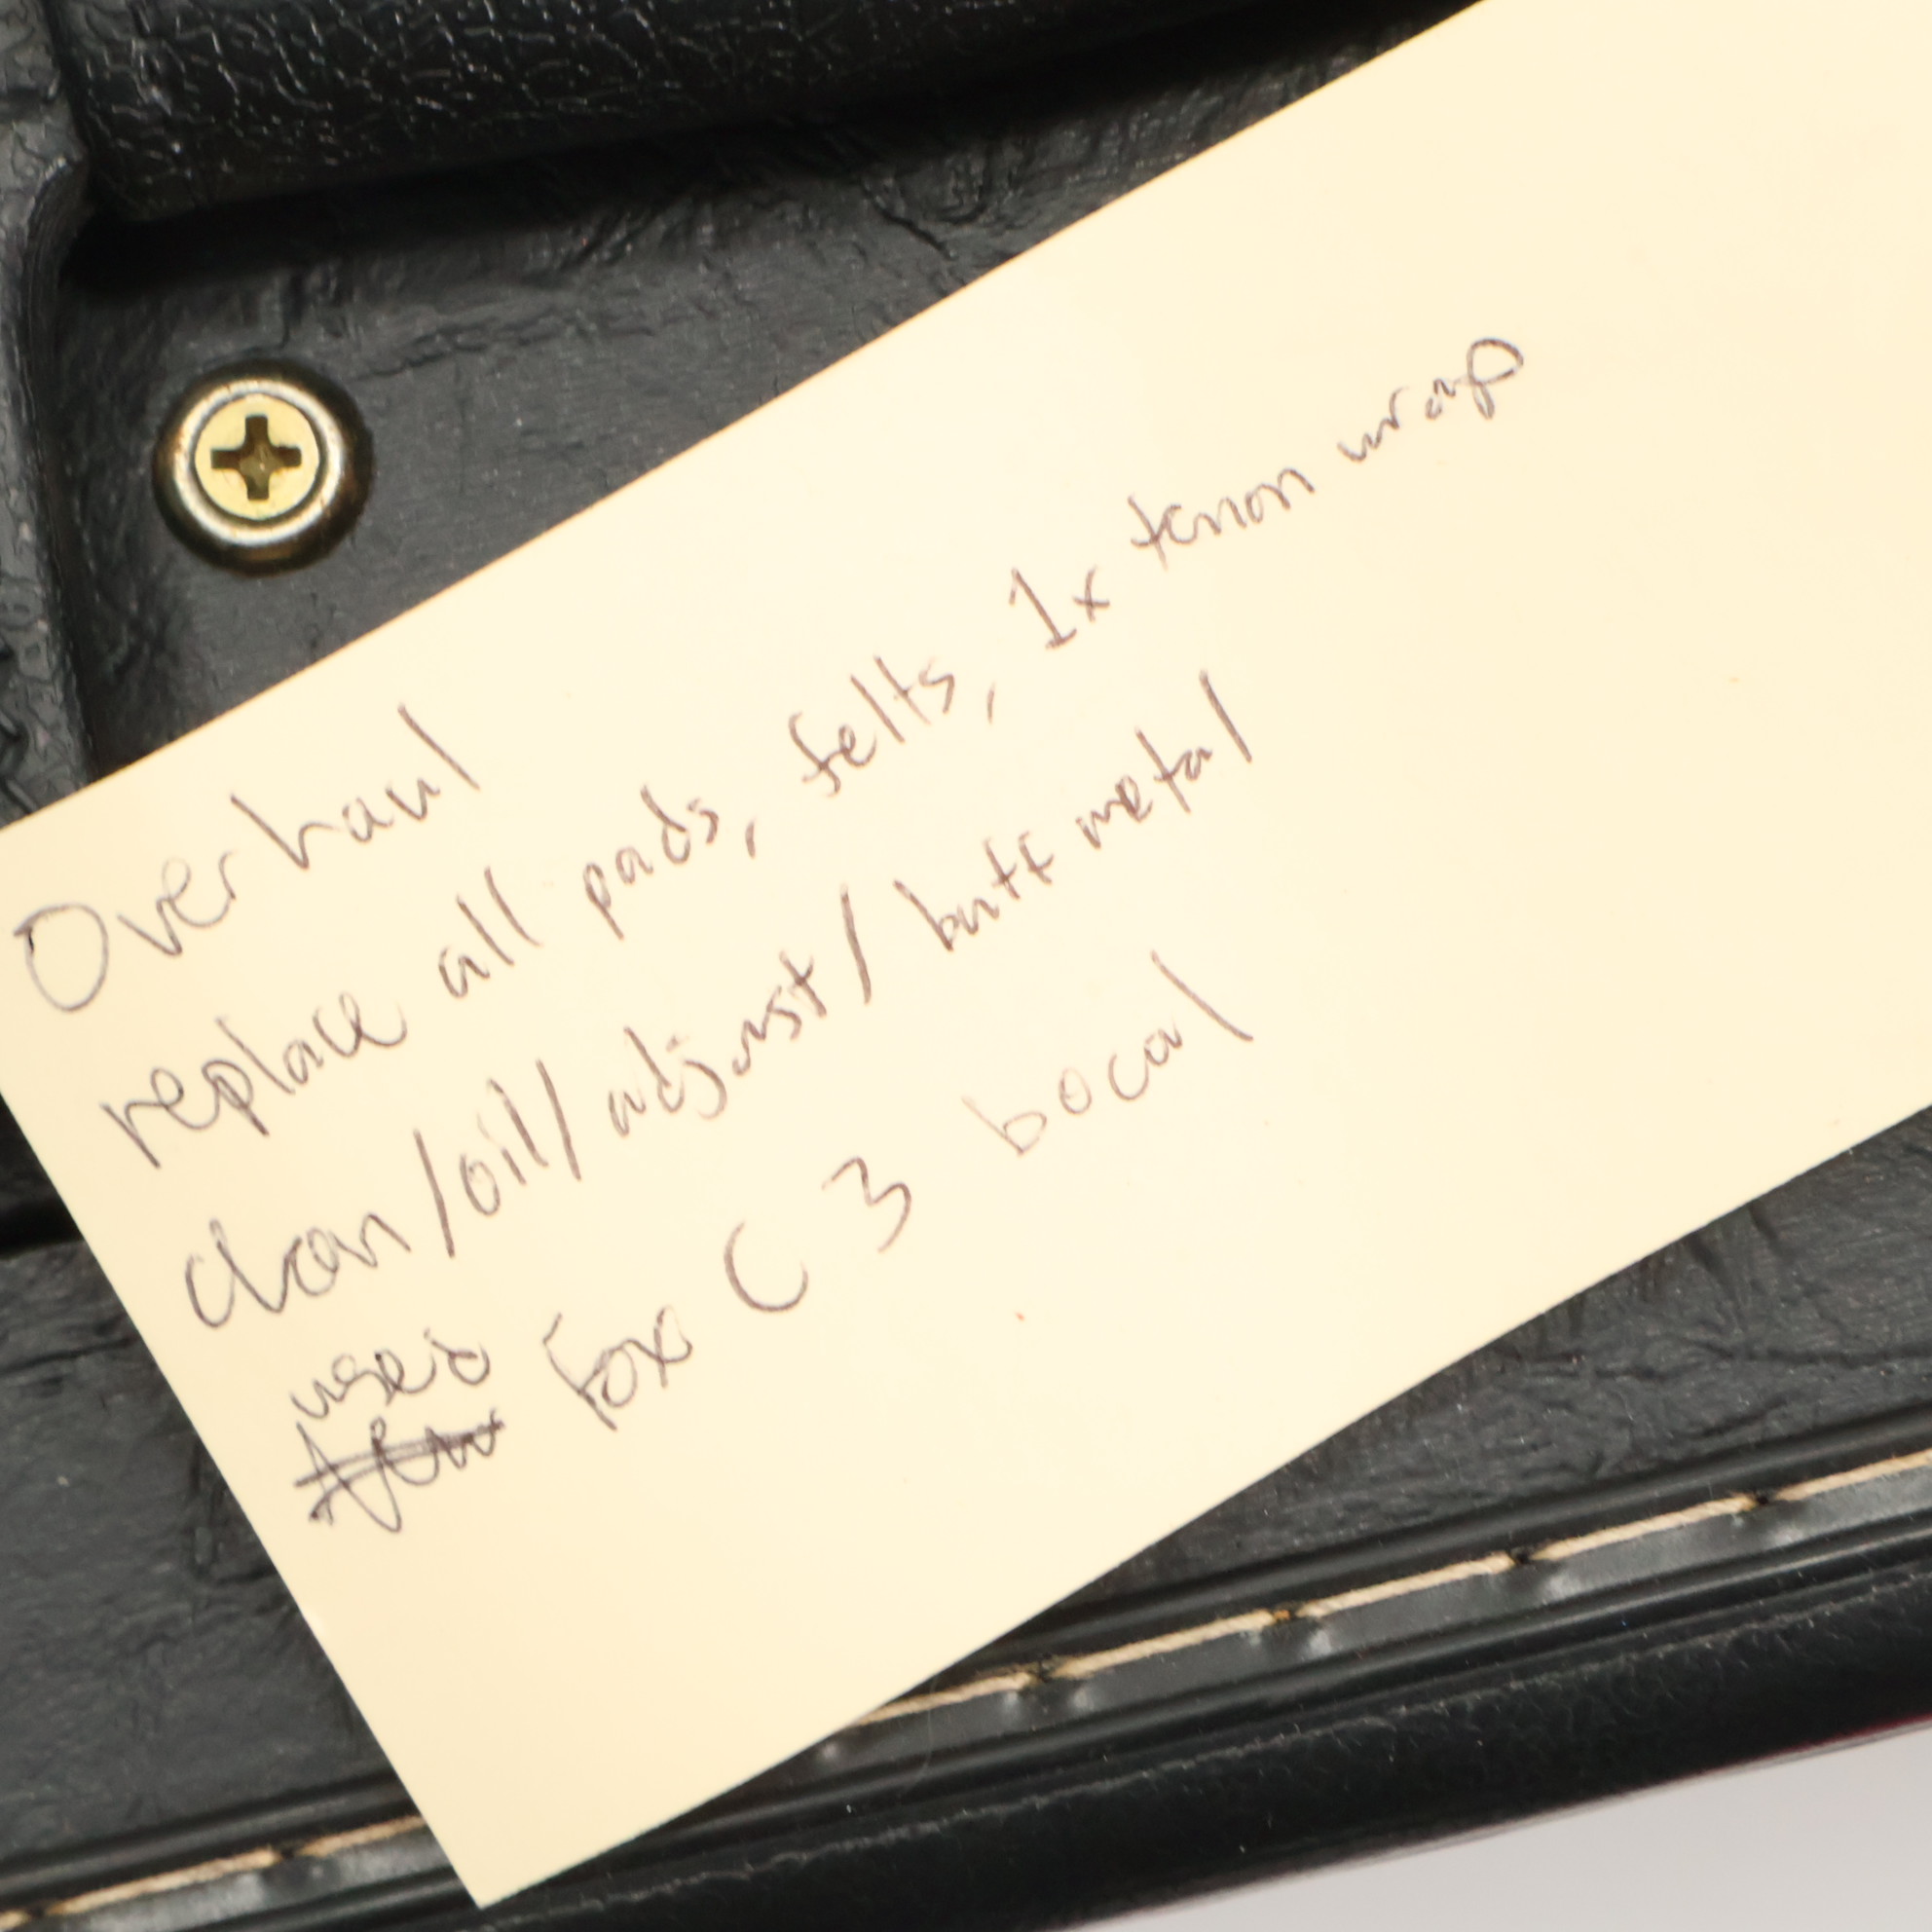 Overhaul
replace all pads, felts, 1x tenon wrap
clean/oil/adjust/buff metal
used
New Fox C 3 bocal